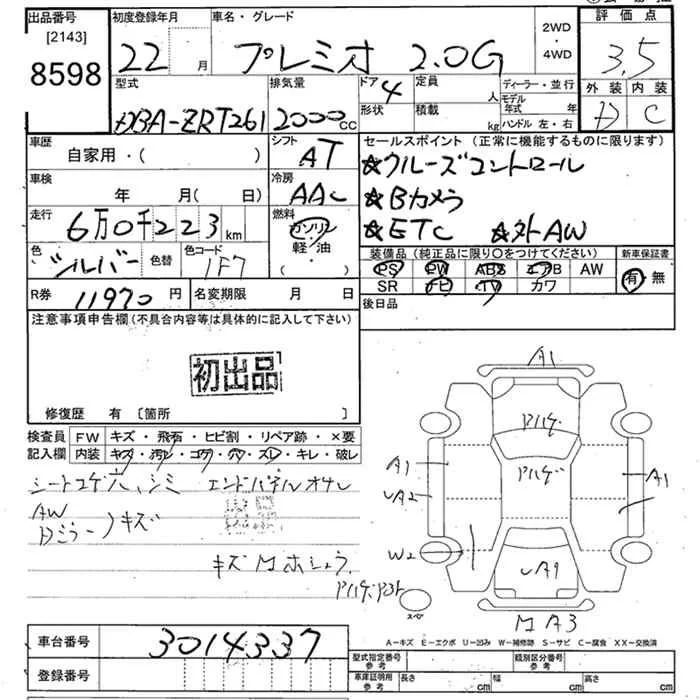 出品番号
[2143]
8598
初度登録年月
22 月
車名・グレード
プレミオ 2.0G
2WD
・
4WD
評価点
3.5
型式
DBA-ZRT261
排気量
2000 CC
ドア 4
形状
定員 人
積載 kg
ディーラー・並行
モデル年式 年
ハンドル 左・右
外装 内装
D C
車歴
自家用・( )
シフト
AT
車検
年 月( 日)
冷房
AAC
走行
6万0千223km
燃料
ガソリン
軽・油
( )
色
シルバー
色替
色コード
1F7
セールスポイント (正常に機能するものに限ります)
☆クルーズコントロール
☆Bカメラ
☆ETC ☆外AW
装備品(純正品に限り〇をつけてください)
PS PW ABS エアB AW
SR ナビ TV カワ
新車保証書
有・無
R券 11970 円
名変期限 月 日
後日品
注意事項申告欄(不具合内容等は具体的に記入して下さい)
初出品
修復歴 有 [箇所 ]
検査員記入欄
FW キズ・飛石・ヒビ割・リペア跡・×要
内装 キズ・汚レ・コゲ・穴・スレ・キレ・破レ
シートコゲ穴、シミ エンドパネルオサレ
AW
Dミラー
キズ
A1
アハゲ
アハゲ
A1
A1
UA2
W2
UA1
スペア
A3
車台番号 3014337
登録番号
A-キズ E-エクボ U-凹み W-補修跡 S-サビ C-腐食 XX-交換済
型式指定番号
参考
類別区分番号
参考
車庫証明用
参考
長さ cm 幅 cm 高さ cm